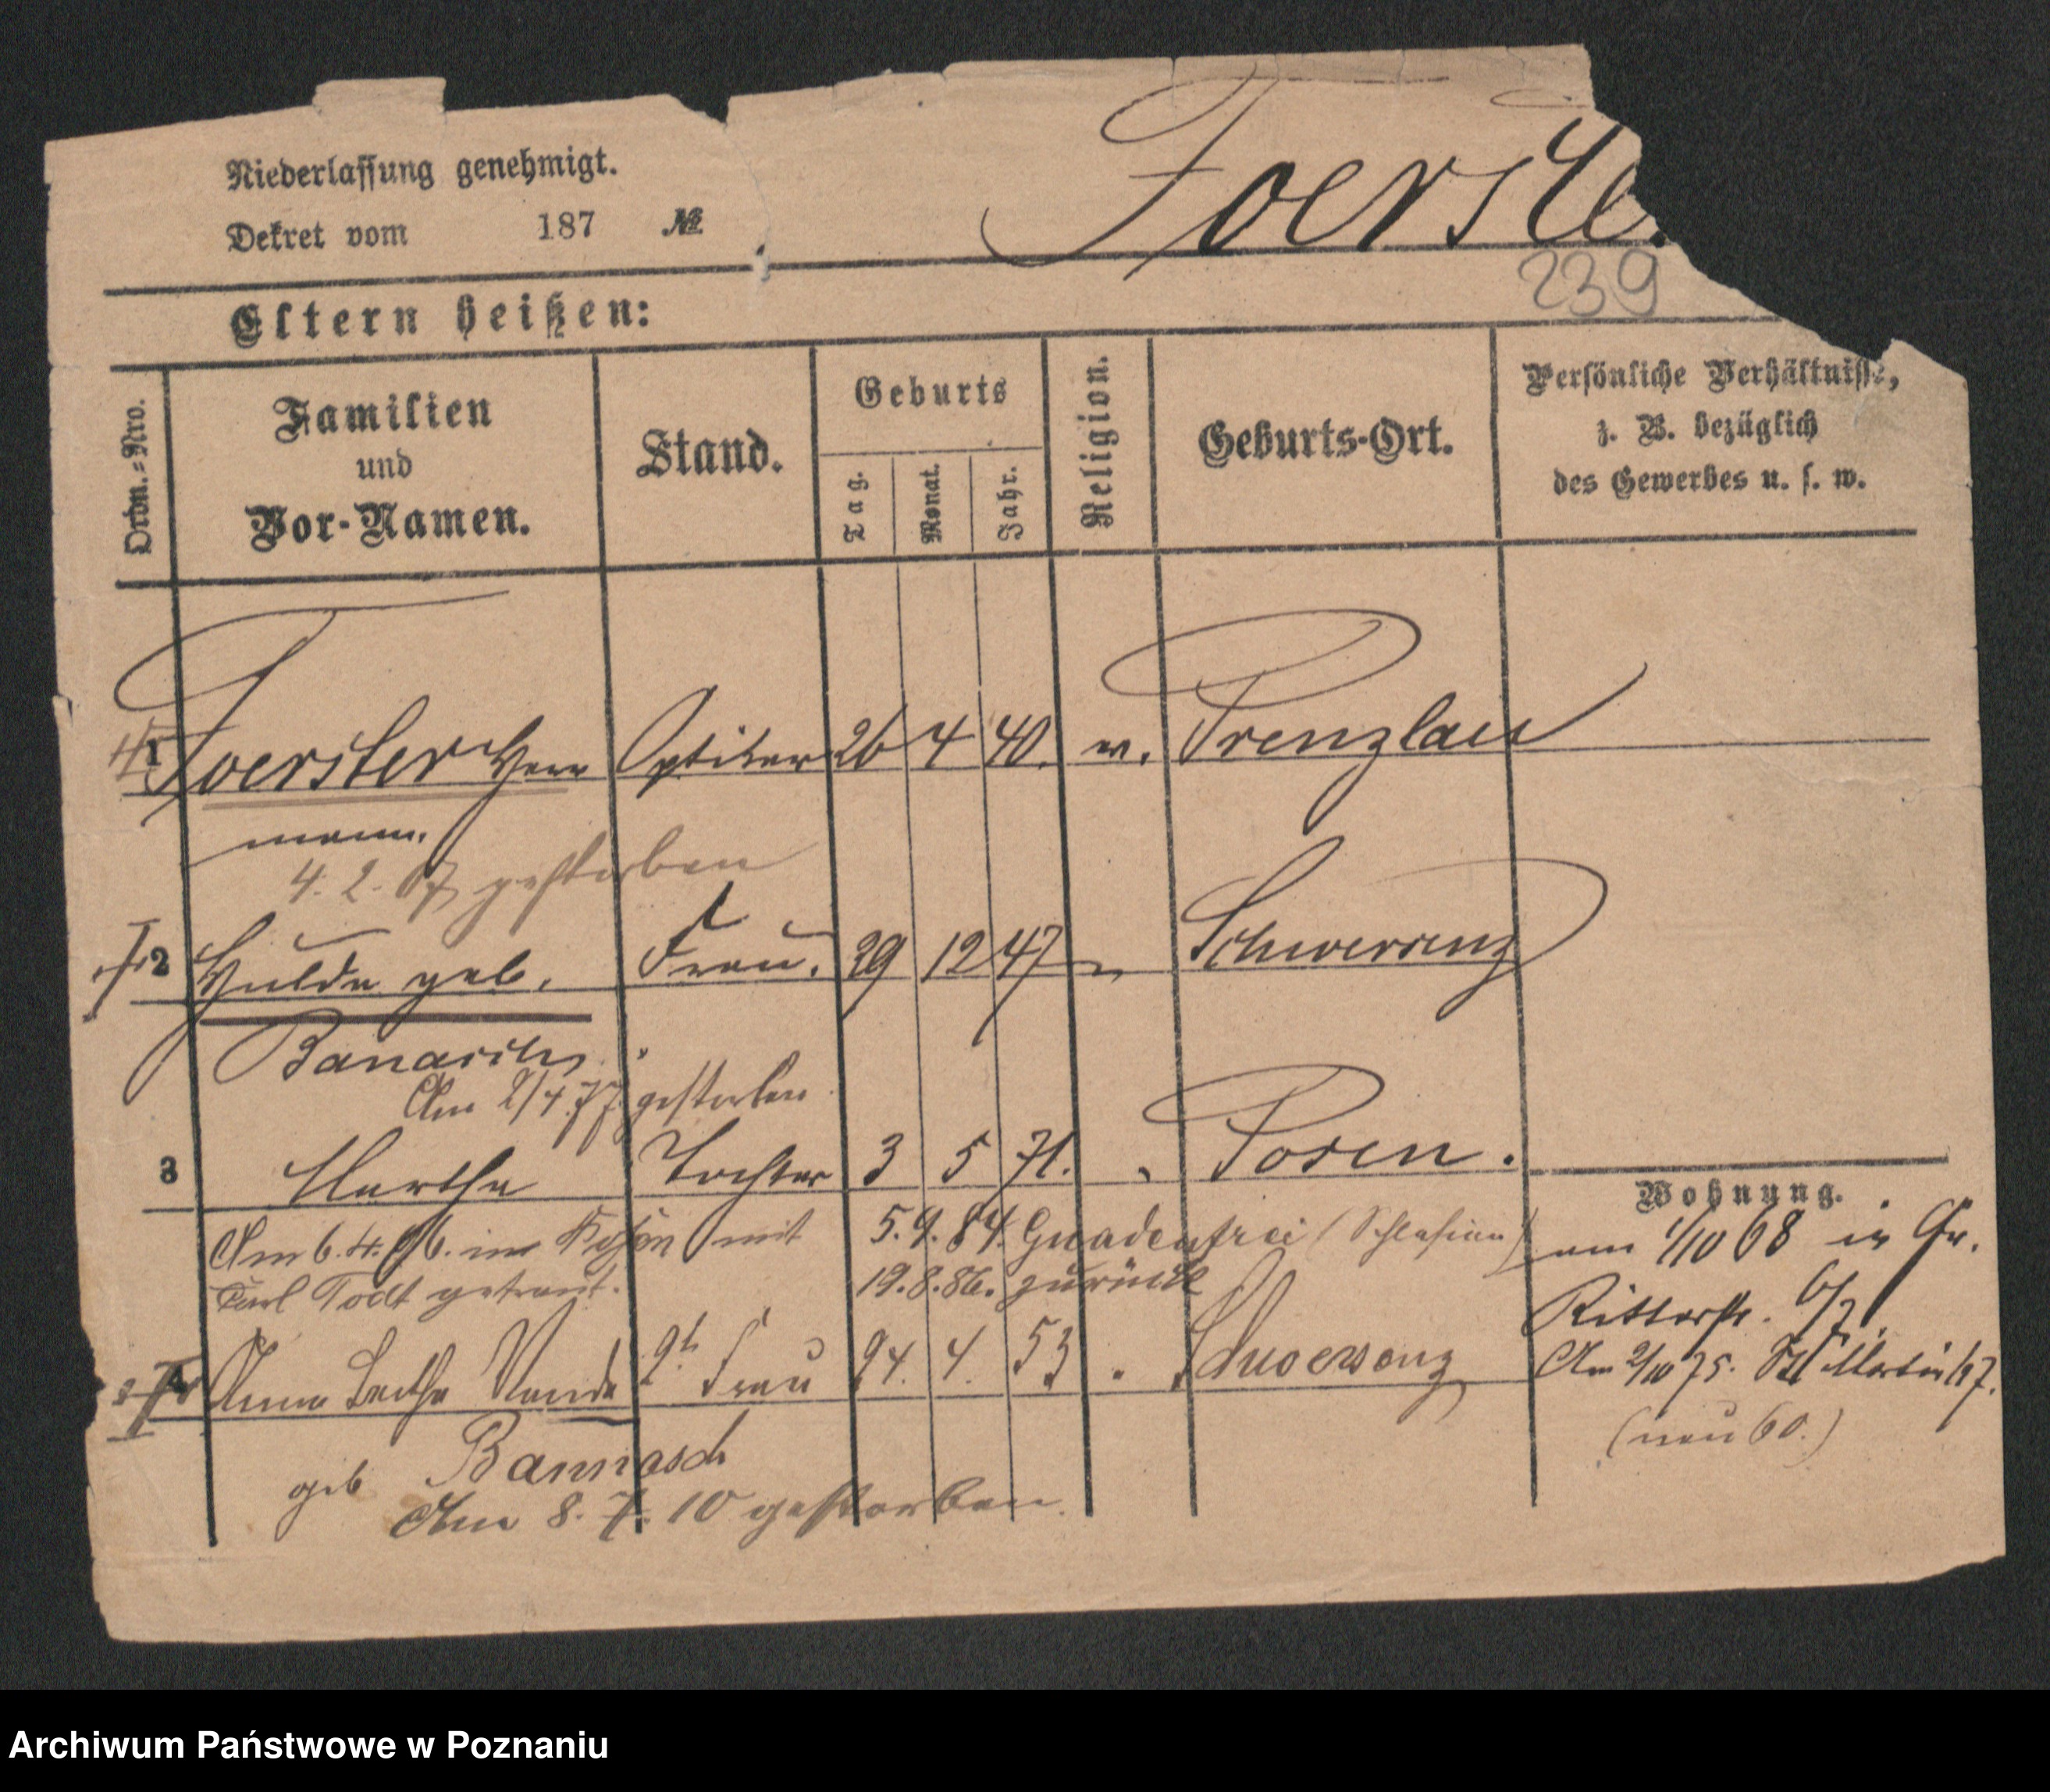 Niederlassung genehmigt.
Dekret vom 187 №
Foerste
239
Eltern heißen:
Ordn.=Nro.
Familien
und
Vor-Namen.
Stand.
Geburts
Tag.
Monat.
Jahr.
Religion.
Geburts-Ort.
Persönliche Verhältnisse,
z. B. bezüglich
des Gewerbes u. s. w.
1 Foerster Herr Optiker 26 4 40. Prenzlau
mann.
4. 2. 07 gestorben
2 Hulda geb. Frau. 29 12 47 Schwersenz
Am 2/4.77. gestorben
3 Martha Tochter 3 5 71. Posen.
Wohnung.
Am 6. 4. 96. in mit 5. 9. 84. Gnadenfrei (Schlesien)
am 1/10 68 in Gr.
Carl Todt getraut. 19. 8. 86. zurück
Ritterstr. 6/7.
Anna Bertha Wanda 2t Frau 24. 4. 53 Schwersenz
Am 2/10 75. St Martin
(neu 60.)
geb Bannasch
Am 8. 7. 10 gestorben.
Archiwum Państwowe w Poznaniu